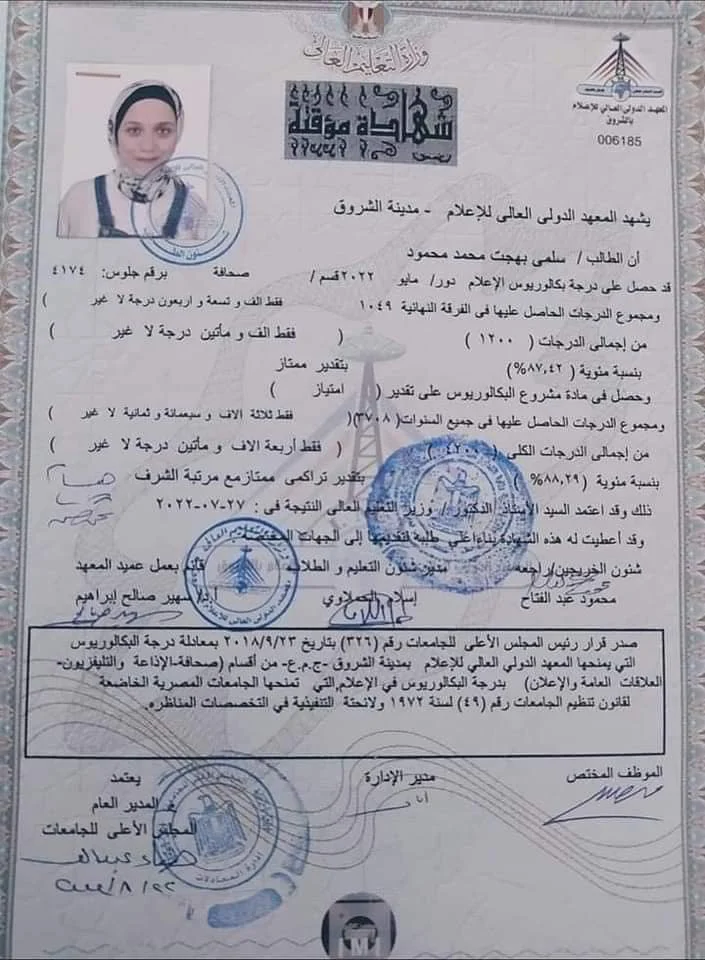 وزارة التعليم العالى
المعهد الدولى العالى للإعلام
بالشروق
006185
شهادة مؤقتة
يشهد المعهد الدولى العالى للإعلام - مدينة الشروق
أن الطالب / سلمى بهجت محمد محمود
قد حصل على درجة بكالوريوس الإعلام دور/ مايو ٢٠٢٢ قسم / صحافة برقم جلوس: ٤١٧٤
ومجموع الدرجات الحاصل عليها فى الفرقة النهائية ١٠٤٩ فقط الف و تسعة و اربعون درجة لا غير )
من إجمالى الدرجات ( ١٢٠٠ ) ( فقط الف و مأتين درجة لا غير )
بنسبة مئوية ( ٨٧,٤٢%) بتقدير ممتاز
وحصل فى مادة مشروع البكالوريوس على تقدير ( امتياز )
ومجموع الدرجات الحاصل عليها فى جميع السنوات( ٣٧٠٨)( فقط ثلاثة الاف و سبعمائة و ثمانية لا غير )
من إجمالى الدرجات الكلى ( ٤٢٠٠ ) ( فقط أربعة الاف و مأتين درجة لا غير )
بنسبة مئوية ( ٨٨,٢٩% ) بتقدير تراكمى ممتاز مع مرتبة الشرف
ذلك وقد اعتمد السيد الأستاذ الدكتور / وزير التعليم العالى النتيجة فى : ٢٧-٠٧-٢٠٢٢
وقد أعطيت له هذه الشهادة بناءا على طلبه لتقديمها إلى الجهات المختصة
شئون الخريجين/راجعه مدير شئون التعليم و الطلاب قائم بعمل عميد المعهد
محمود عبد الفتاح إسلام الحملاوي أ.د/ سهير صالح إبراهيم
صدر قرار رئيس المجلس الأعلى للجامعات رقم (٣٢٦) بتاريخ ٢٠١٨/٩/٢٣ بمعادلة درجة البكالوريوس
التي يمنحها المعهد الدولي العالي للإعلام بمدينة الشروق -ج.م.ع- من أقسام (صحافة-الإذاعة والتليفزيون-
العلاقات العامة والإعلان) بدرجة البكالوريوس في الإعلام,التي تمنحها الجامعات المصرية الخاضعة
لقانون تنظيم الجامعات رقم (٤٩) لسنة ١٩٧٢ ولانحتة التنفيذية في التخصصات المناظره.
الموظف المختص مدير الإدارة يعتمد
المدير العام
المجلس الأعلى للجامعات